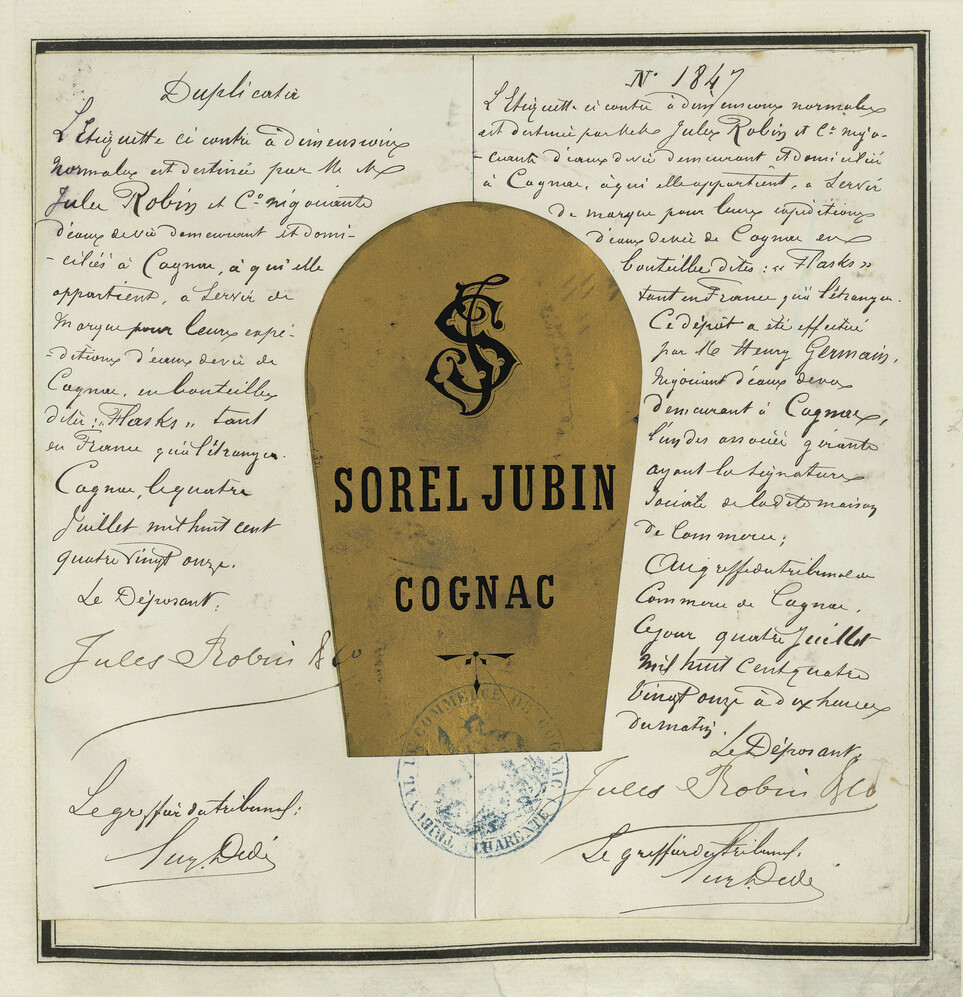 Duplicata
L'Etiquette ci contre à dimensions
normales est destinée par M Ms
Jules Robin et Co négociants
d'eaux de vie demeurant et domi-
-ciliés à Cognac, à qui elle
appartient, a servir de
marque pour leurs expé-
-ditions d'eaux de vie de
Cognac, en bouteilles
dites: "Flasks" tant
en France qu'à l'étranger.
Cognac, le quatre
Juillet mil huit cent
quatre vingt onze.
Le Déposant:
Jules Robin & Co
Le greffier du tribunal:
No 1847
L'Etiquette ci contre à dimensions normales
est destinée par M Ms Jules Robin et Co négo-
-ciants d'eaux de vie demeurant et domiciliés
à Cognac, à qui elle appartient, a servir
de marque pour leurs expéditions
d'eaux de vie de Cognac en
bouteilles dites: "Flasks"
tant en France qu'à l'étranger.
Ce dépot a été effectué
par M Henry Germain,
négociant d'eaux de vie
demeurant à Cognac,
l'un des associés gérants
ayant la signature
sociale de la dite maison
de Commerce;
Au greffe du tribunal de
Commerce de Cognac,
Ce jour quatre Juillet
mil huit cent quatre
vingt onze à dix heures
du matin.
Le Déposant,
Jules Robin & Co
Le greffier du tribunal:
SJ
SOREL JUBIN
COGNAC
TRIBUNAL DE COMMERCE DE COGNAC
CHARENTE